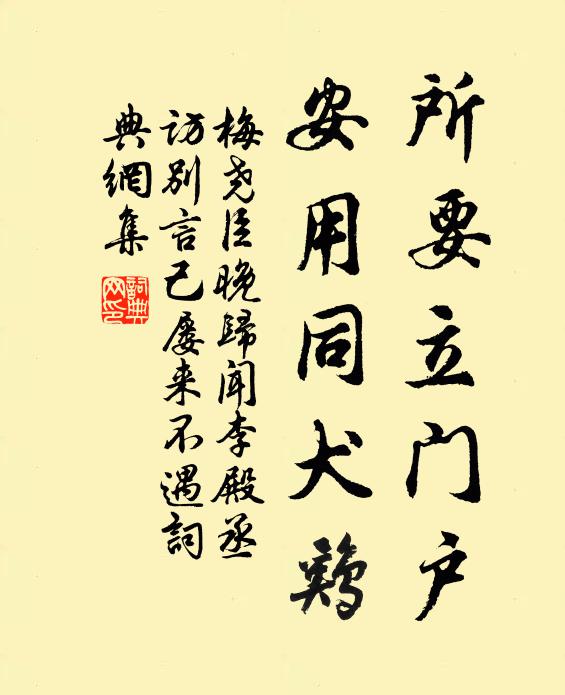 所要立门户
安用同犬鷄
梅尧臣晚歸闻李殿丞
访别言已屡来不遇詞
典網集
詞典
网印